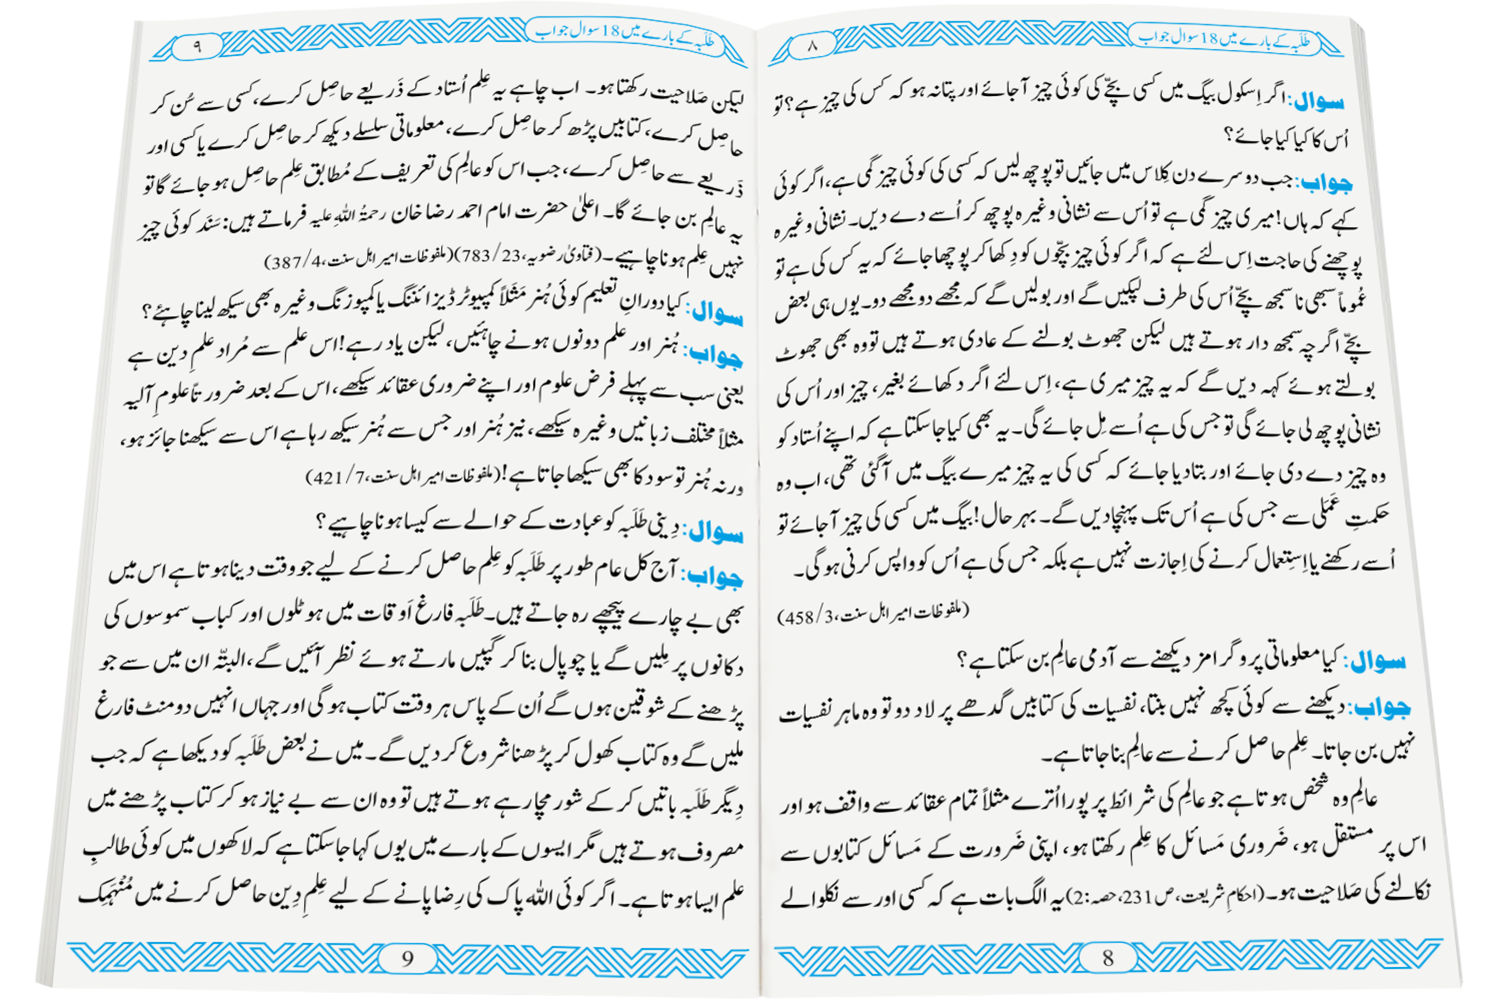 طَلَبہ کے بارے میں 18 سوال جواب
۸
سوال: اگر اِسکول بیگ میں کسی بچّے کی کوئی چیز آجائے اور پتا نہ ہو کہ کس کی چیز ہے؟ تو
اُس کا کیا کیا جائے؟
جواب: جب دوسرے دن کِلاس میں جائیں تو پوچھ لیں کہ کسی کی کوئی چیز گمی ہے، اگر کوئی
کہے کہ ہاں! میری چیز گمی ہے تو اُس سے نشانی وغیرہ پوچھ کر اُسے دے دیں۔ نشانی وغیرہ
پوچھنے کی حاجت اِس لئے ہے کہ اگر کوئی چیز بچّوں کو دِکھا کر پوچھا جائے کہ یہ کس کی ہے تو
عُموماً سبھی ناسمجھ بچّے اُس کی طرف لپکیں گے اور بولیں گے کہ مجھے دو مجھے دو۔ یوں ہی بعض
بچّے اگرچہ سمجھ دار ہوتے ہیں لیکن جھوٹ بولنے کے عادی ہوتے ہیں تو وہ بھی جھوٹ
بولتے ہوئے کہہ دیں گے کہ یہ چیز میری ہے، اِس لئے اگر دکھائے بغیر، چیز اور اُس کی
نشانی پوچھ لی جائے گی تو جس کی ہے اُسے مِل جائے گی۔ یہ بھی کیا جا سکتا ہے کہ اپنے اُستاد کو
وہ چیز دے دی جائے اور بتا دیا جائے کہ کسی کی یہ چیز میرے بیگ میں آگئی تھی، اب وہ
حکمتِ عَمَلی سے جس کی ہے اُس تک پہنچا دیں گے۔ بہر حال! بیگ میں کسی کی چیز آجائے تو
اُسے رکھنے یا اِستِعمال کرنے کی اِجازت نہیں ہے بلکہ جس کی ہے اُس کو واپس کرنی ہو گی۔
(ملفوظات امیر اہل سنت، 3/458)
سوال: کیا معلوماتی پروگرامز دیکھنے سے آدمی عالِم بن سکتا ہے؟
جواب: دیکھنے سے کوئی کچھ نہیں بنتا، نفسیات کی کتابیں گدھے پر لاد دو تو وہ ماہرِ نفسیات
نہیں بن جاتا۔ عِلم حاصل کرنے سے عالِم بنا جاتا ہے۔
عالِم وہ شخص ہوتا ہے جو عالِم کی شرائط پر پورا اُترے مثلاً تمام عقائد سے واقف ہو اور
اس پر مستقل ہو، ضَروری مَسائل کا عِلم رکھتا ہو، اپنی ضَرورت کے مَسائل کتابوں سے
نکالنے کی صَلاحیت ہو۔ (احکامِ شریعت، ص231، حصہ:2) یہ الگ بات ہے کہ کسی اور سے نکلوالے
8
طَلَبہ کے بارے میں 18 سوال جواب
۹
لیکن صَلاحیت رکھتا ہو۔ اب چاہے یہ عِلم اُستاد کے ذَریعے حاصِل کرے، کسی سے سُن کر
حاصِل کرے، کتابیں پڑھ کر حاصِل کرے، معلوماتی سلسلے دیکھ کر حاصِل کرے یا کسی اور
ذَریعے سے حاصِل کرے، جب اس کو عالِم کی تعریف کے مُطابق عِلم حاصِل ہو جائے گا تو
یہ عالِم بن جائے گا۔ اعلیٰ حضرت امام احمد رضا خان رحمۃُ اللہِ علیہ فرماتے ہیں: سَنَد کوئی چیز
نہیں عِلم ہونا چاہیے۔ (فتاویٰ رضویہ، 23/783) (ملفوظات امیر اہل سنت، 4/387)
سوال: کیا دورانِ تعلیم کوئی ہُنر مَثَلاً کمپیوٹر ڈیزائننگ یا کمپوزنگ وغیرہ بھی سیکھ لینا چاہئے؟
جواب: ہُنر اور علم دونوں ہونے چاہئیں، لیکن یاد رہے! اس علم سے مُراد علمِ دین ہے
یعنی سب سے پہلے فرض علوم اور اپنے ضروری عقائد سیکھے، اس کے بعد ضرورتاً علومِ آلیہ
مثلاً مختلف زبانیں وغیرہ سیکھے، نیز ہُنر اور جس سے ہُنر سیکھ رہا ہے اس سے سیکھنا جائز ہو،
ورنہ ہُنر تو سود کا بھی سیکھا جاتا ہے! (ملفوظات امیر اہل سنت، 7/421)
سوال: دِینی طَلَبہ کو عبادت کے حوالے سے کیسا ہونا چاہیے؟
جواب: آج کل عام طور پر طَلَبہ کو عِلم حاصل کرنے کے لیے جو وقت دینا ہوتا ہے اس میں
بھی بے چارے پیچھے رہ جاتے ہیں۔ طَلَبہ فارغ اَوقات میں ہوٹلوں اور کباب سموسوں کی
دکانوں پر مِلیں گے یا چوپال بنا کر گپیں مارتے ہوئے نظر آئیں گے، البتّہ ان میں سے جو
پڑھنے کے شوقین ہوں گے اُن کے پاس ہر وقت کتاب ہو گی اور جہاں انہیں دو منٹ فارغ
ملیں گے وہ کتاب کھول کر پڑھنا شروع کر دیں گے۔ میں نے بعض طَلَبہ کو دیکھا ہے کہ جب
دِیگر طَلَبہ باتیں کر کے شور مچا رہے ہوتے ہیں تو وہ ان سے بے نیاز ہو کر کتاب پڑھنے میں
مصروف ہوتے ہیں مگر ایسوں کے بارے میں یوں کہا جاسکتا ہے کہ لاکھوں میں کوئی طالبِ
علم ایسا ہوتا ہے۔ اگر کوئی اللہ پاک کی رِضا پانے کے لیے عِلمِ دِین حاصل کرنے میں مُنْہَمِک
9